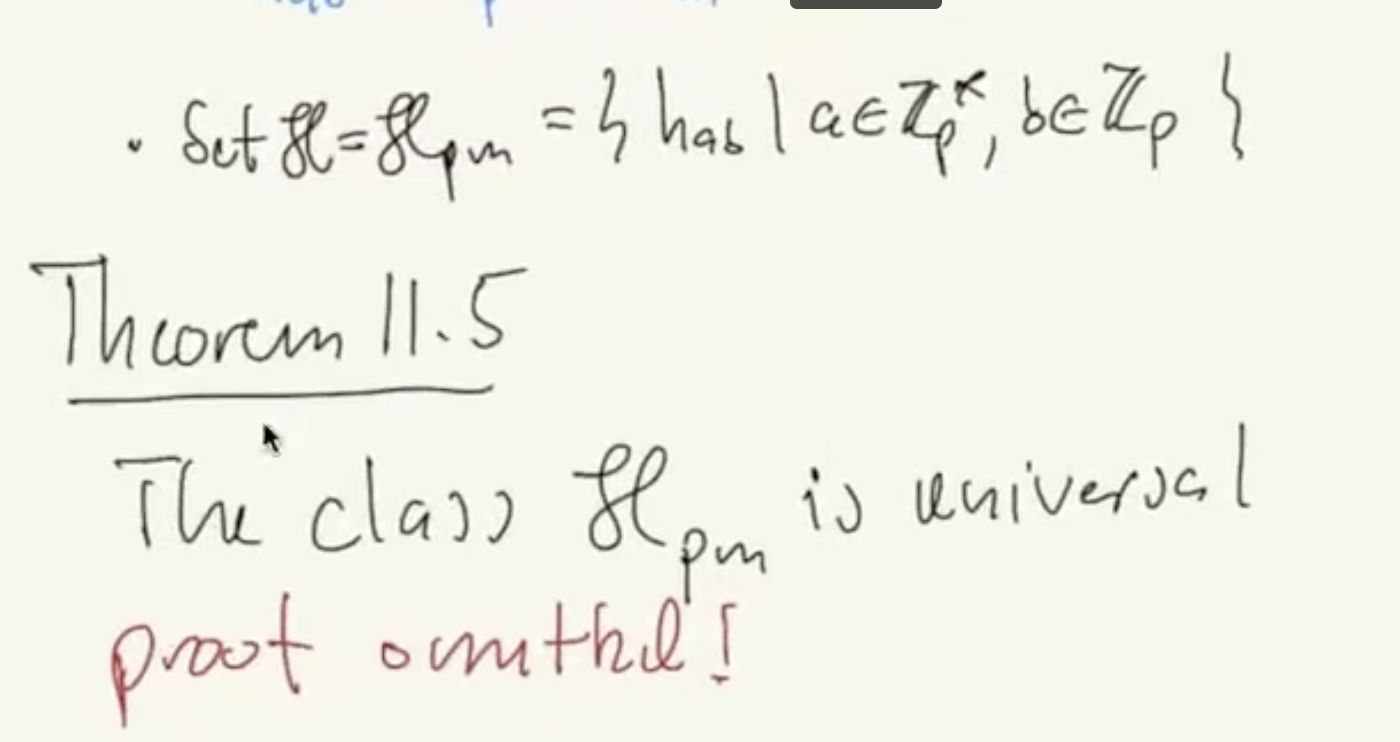 · Set ℋ = ℋpm = { hab | a ∈ ℤp*, b ∈ ℤp }
Theorem 11.5
The class ℋpm is universal
proof omitted!